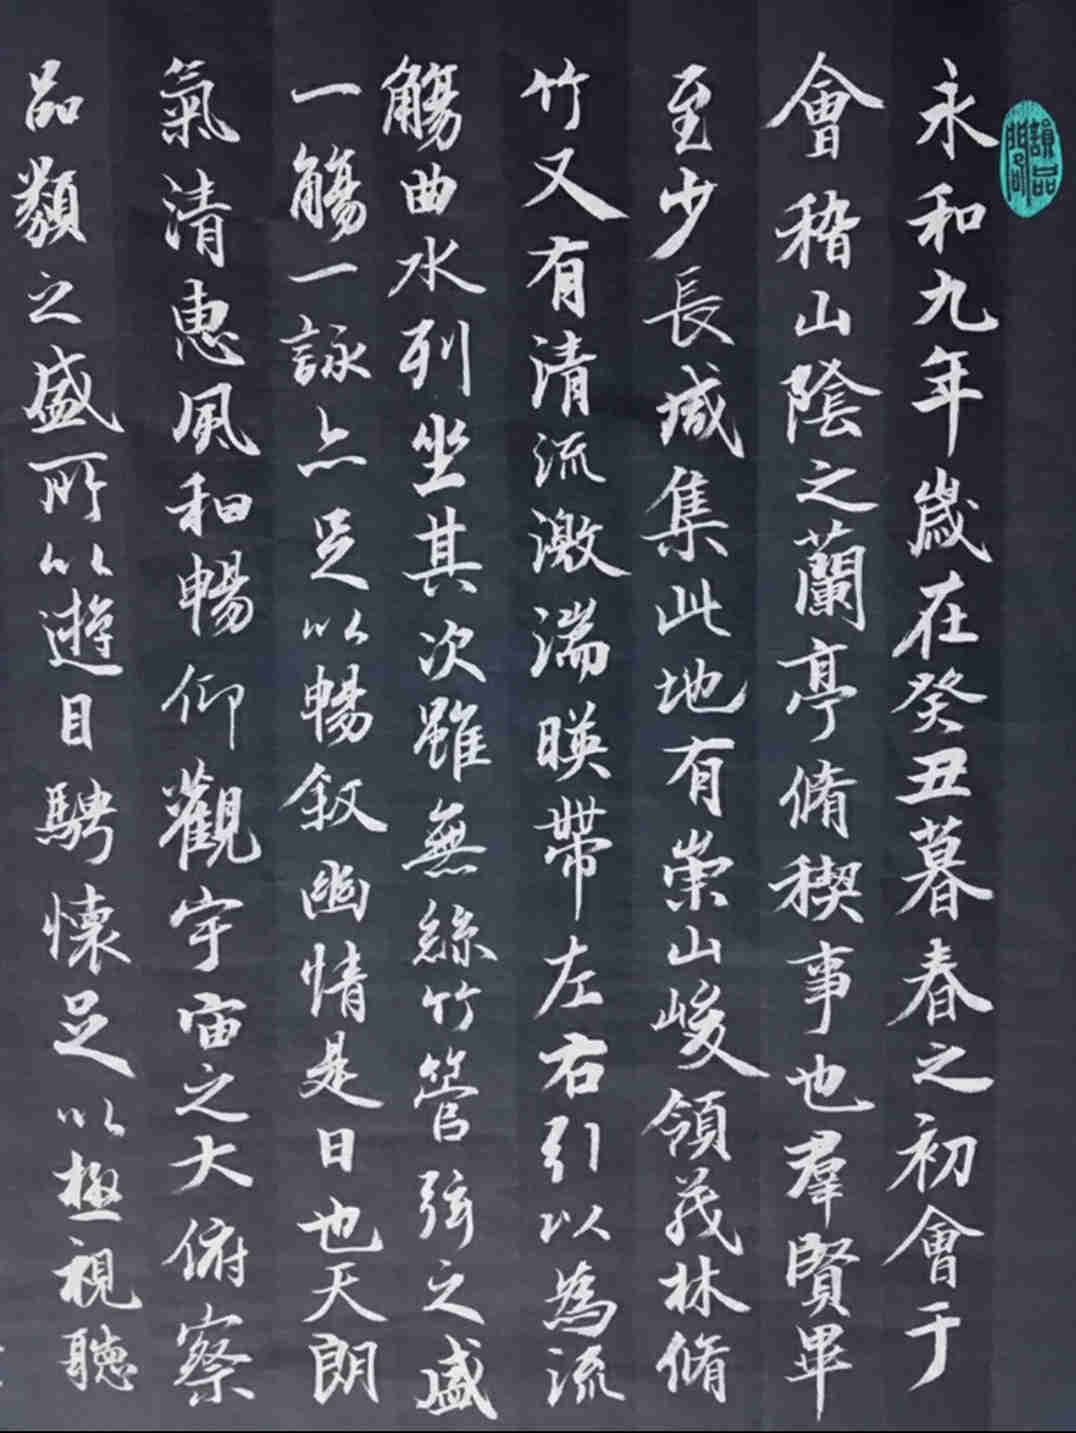 永和九年歲在癸丑暮春之初會于
會稽山陰之蘭亭脩稧事也羣賢畢
至少長咸集此地有崇山峻領茂林脩
竹又有清流激湍暎帶左右引以為流
觴曲水列坐其次雖無絲竹管弦之盛
一觴一詠亦足以暢敘幽情是日也天朗
氣清惠風和暢仰觀宇宙之大俯察
品類之盛所以遊目騁懷足以極視聽